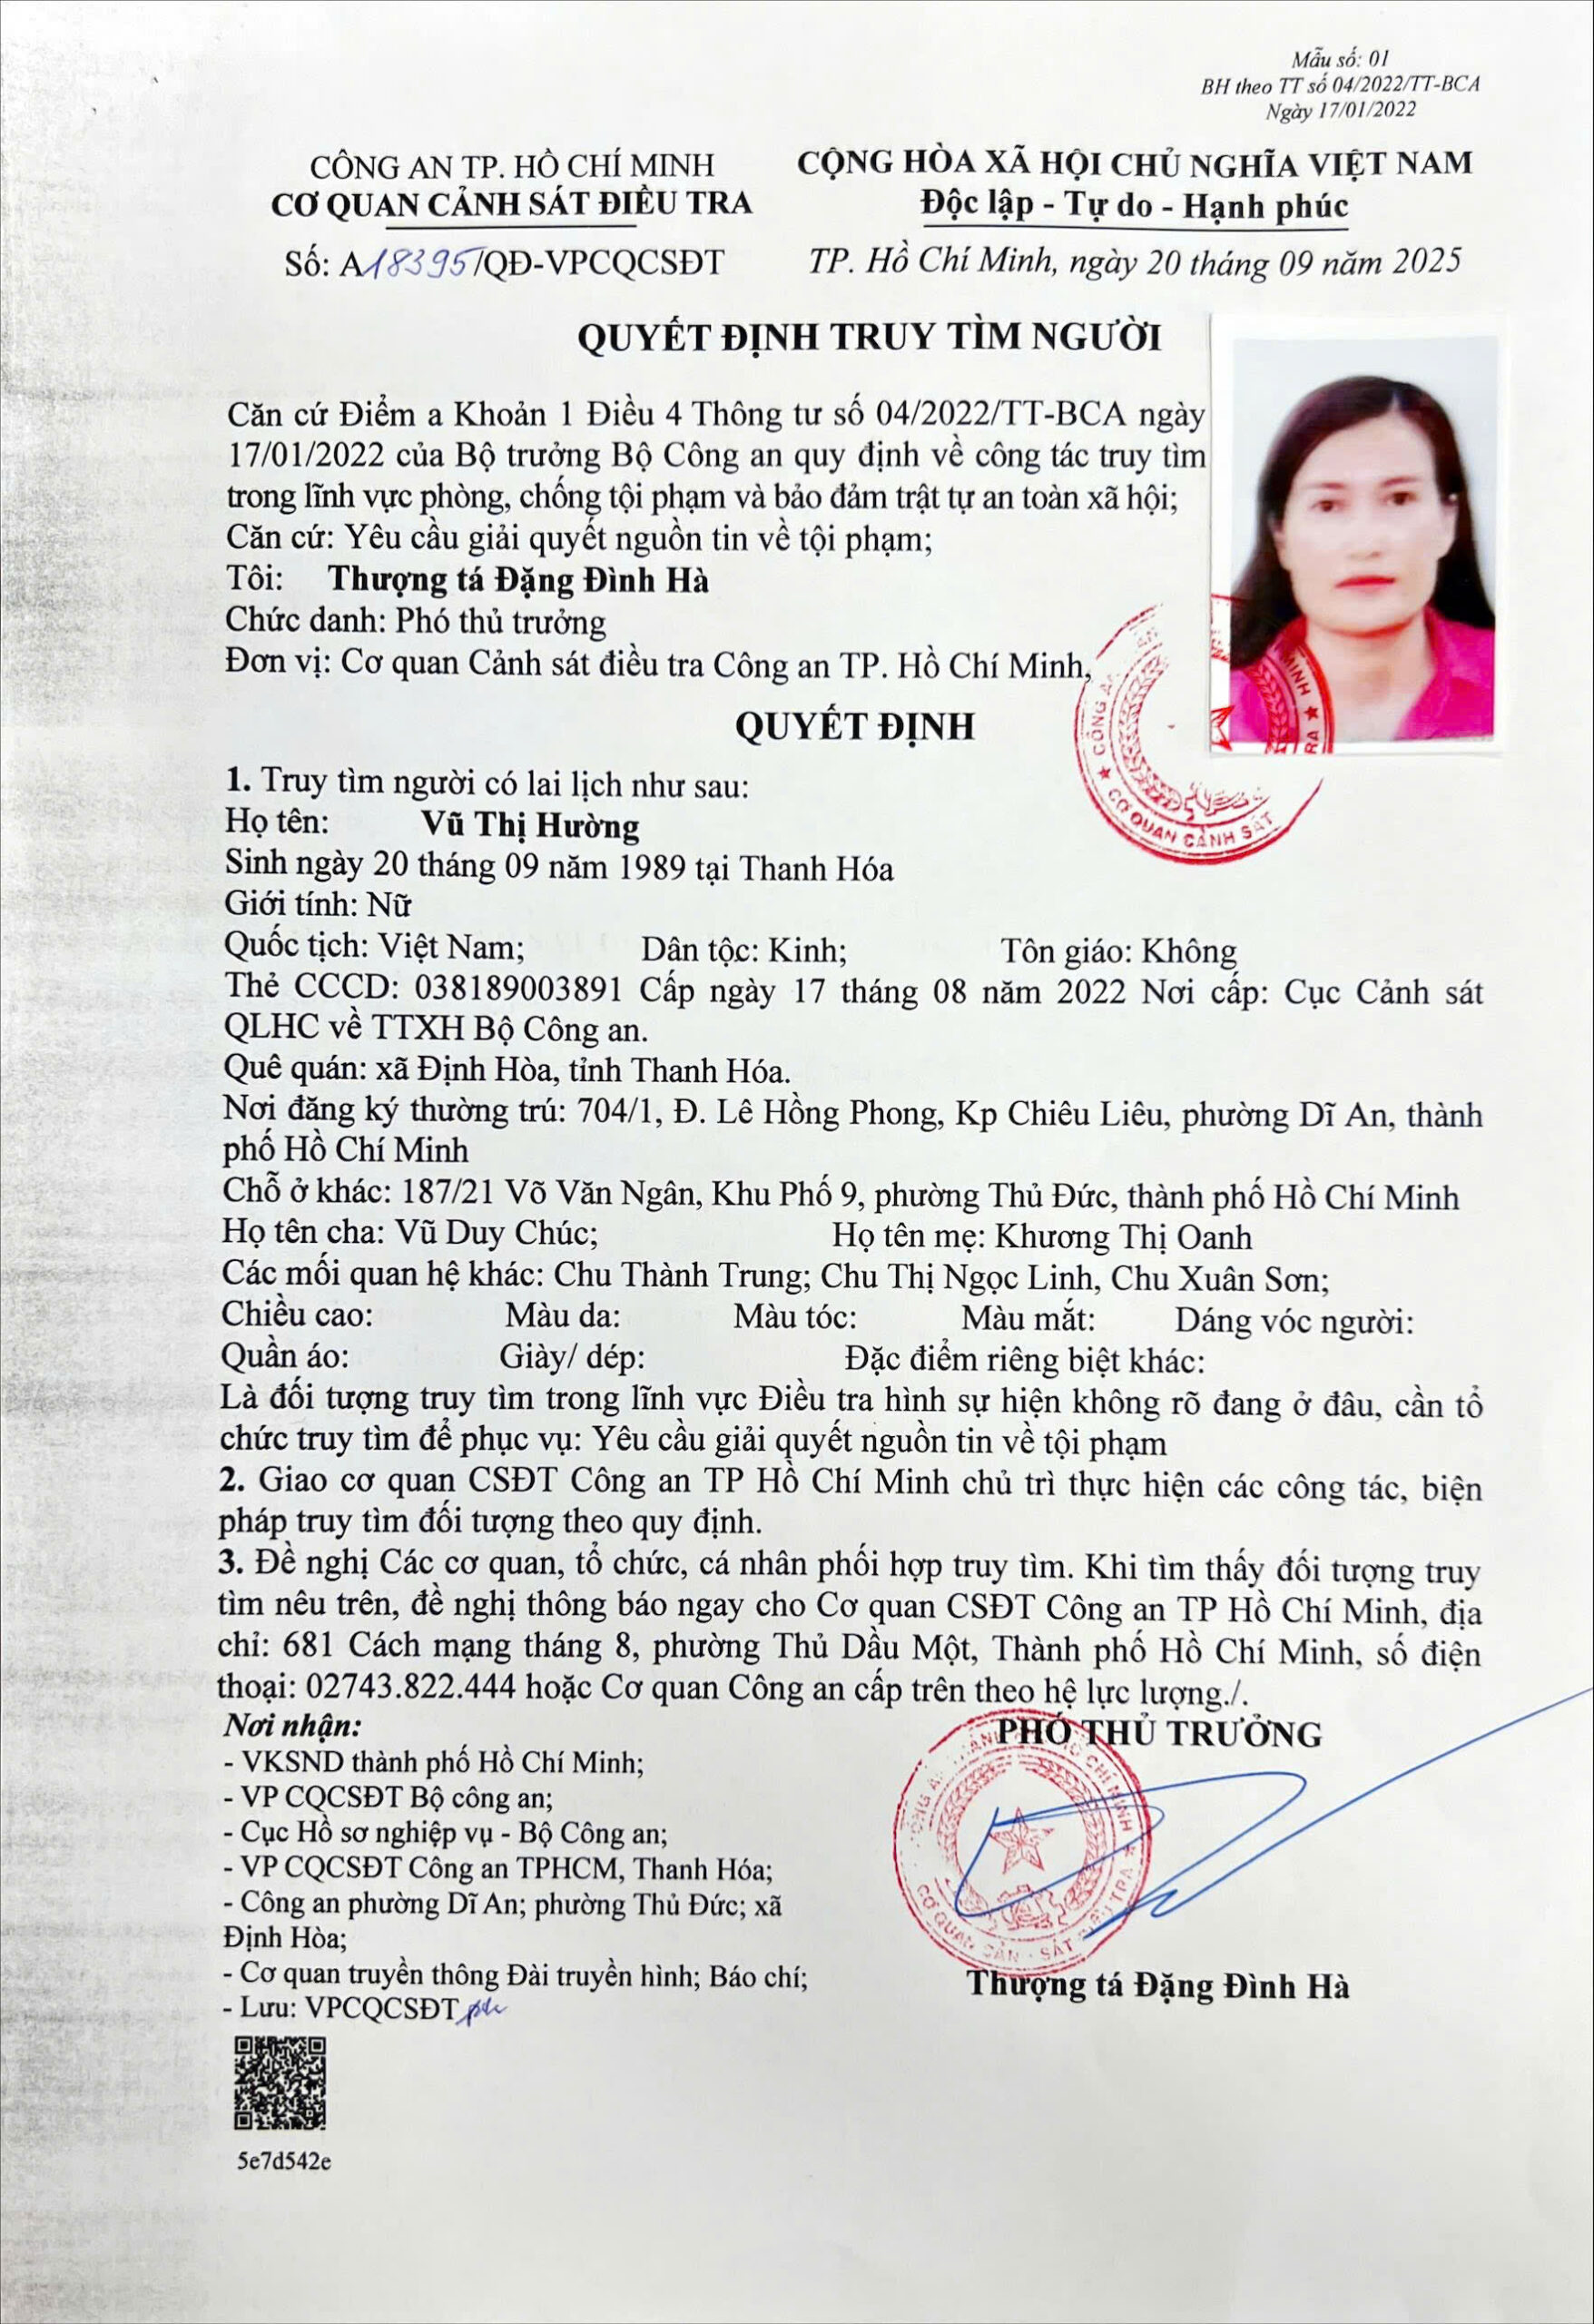 Mẫu số: 01
BH theo TT số 04/2022/TT-BCA
Ngày 17/01/2022
CÔNG AN TP. HỒ CHÍ MINH
CƠ QUAN CẢNH SÁT ĐIỀU TRA
CỘNG HÒA XÃ HỘI CHỦ NGHĨA VIỆT NAM
Độc lập - Tự do - Hạnh phúc
Số: A18395/QĐ-VPCQCSĐT
TP. Hồ Chí Minh, ngày 20 tháng 09 năm 2025
QUYẾT ĐỊNH TRUY TÌM NGƯỜI
Căn cứ Điểm a Khoản 1 Điều 4 Thông tư số 04/2022/TT-BCA ngày
17/01/2022 của Bộ trưởng Bộ Công an quy định về công tác truy tìm
trong lĩnh vực phòng, chống tội phạm và bảo đảm trật tự an toàn xã hội;
Căn cứ: Yêu cầu giải quyết nguồn tin về tội phạm;
Tôi: Thượng tá Đặng Đình Hà
Chức danh: Phó thủ trưởng
Đơn vị: Cơ quan Cảnh sát điều tra Công an TP. Hồ Chí Minh,
CÔNG AN MINH
CƠ QUAN CẢNH SÁT TRA
QUYẾT ĐỊNH
1. Truy tìm người có lai lịch như sau:
Họ tên: Vũ Thị Hường
Sinh ngày 20 tháng 09 năm 1989 tại Thanh Hóa
Giới tính: Nữ
Quốc tịch: Việt Nam; Dân tộc: Kinh; Tôn giáo: Không
Thẻ CCCD: 038189003891 Cấp ngày 17 tháng 08 năm 2022 Nơi cấp: Cục Cảnh sát
QLHC về TTXH Bộ Công an.
Quê quán: xã Định Hòa, tỉnh Thanh Hóa.
Nơi đăng ký thường trú: 704/1, Đ. Lê Hồng Phong, Kp Chiêu Liêu, phường Dĩ An, thành
phố Hồ Chí Minh
Chỗ ở khác: 187/21 Võ Văn Ngân, Khu Phố 9, phường Thủ Đức, thành phố Hồ Chí Minh
Họ tên cha: Vũ Duy Chúc; Họ tên mẹ: Khương Thị Oanh
Các mối quan hệ khác: Chu Thành Trung; Chu Thị Ngọc Linh, Chu Xuân Sơn;
Chiều cao: Màu da: Màu tóc: Màu mắt: Dáng vóc người:
Quần áo: Giày/ dép: Đặc điểm riêng biệt khác:
Là đối tượng truy tìm trong lĩnh vực Điều tra hình sự hiện không rõ đang ở đâu, cần tổ
chức truy tìm để phục vụ: Yêu cầu giải quyết nguồn tin về tội phạm
2. Giao cơ quan CSĐT Công an TP Hồ Chí Minh chủ trì thực hiện các công tác, biện
pháp truy tìm đối tượng theo quy định.
3. Đề nghị Các cơ quan, tổ chức, cá nhân phối hợp truy tìm. Khi tìm thấy đối tượng truy
tìm nêu trên, đề nghị thông báo ngay cho Cơ quan CSĐT Công an TP Hồ Chí Minh, địa
chỉ: 681 Cách mạng tháng 8, phường Thủ Dầu Một, Thành phố Hồ Chí Minh, số điện
thoại: 02743.822.444 hoặc Cơ quan Công an cấp trên theo hệ lực lượng./.
Nơi nhận:
- VKSND thành phố Hồ Chí Minh;
- VP CQCSĐT Bộ công an;
- Cục Hồ sơ nghiệp vụ - Bộ Công an;
- VP CQCSĐT Công an TPHCM, Thanh Hóa;
- Công an phường Dĩ An; phường Thủ Đức; xã
Định Hòa;
- Cơ quan truyền thông Đài truyền hình; Báo chí;
- Lưu: VPCQCSĐT
PHÓ THỦ TRƯỞNG
Thượng tá Đặng Đình Hà
5e7d542e